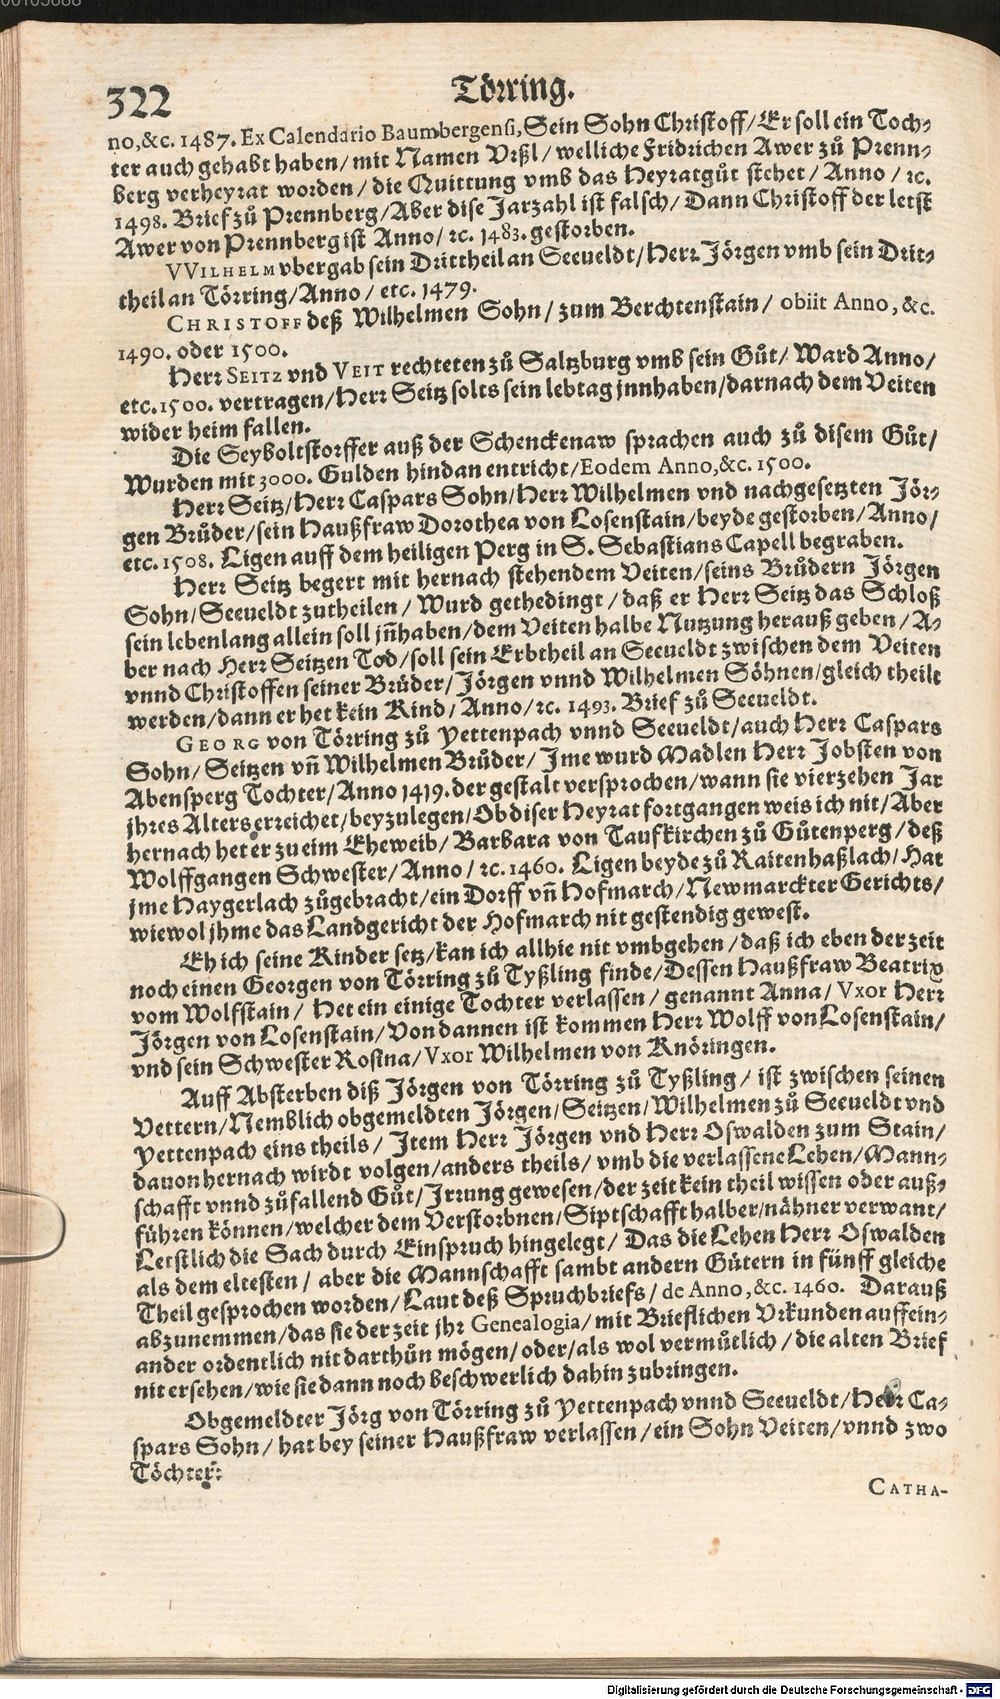 322
Törring.
no,&c. 1487. Ex Calendario Baumbergensi, Sein Sohn Christoff/ Er soll ein Toch-
ter auch gehabt haben/ mit Namen Vrßl/ welliche Fridrichen Awer zů Prenn-
berg verheyrat worden/ die Quittung vmb das Heyratgůt stehet/ Anno/ ꝛc.
1498. Brief zů Prennberg/ Aber dise Jarzahl ist falsch/ Dann Christoff der letst
Awer von Prennberg ist Anno/ ꝛc. 1483. gestorben.
VVILHELM vbergab sein Drittheil an Seeueldt/ Herr Jörgen vmb sein Drit-
theil an Törring/ Anno/ etc. 1479.
CHRISTOFF deß Wilhelmen Sohn/ zum Berchtenstain/ obiit Anno, &c.
1490. oder 1500.
Herr SEITZ vnd VEIT rechteten zů Saltzburg vmb sein Gůt/ Ward Anno/
etc. 1500. vertragen/ Herr Seitz solts sein lebtag jnnhaben/ darnach dem Veiten
wider heim fallen.
Die Seyboltstorffer auß der Schenckenaw sprachen auch zů disem Gůt/
Wurden mit 3000. Gulden hindan entricht/ Eodem Anno,&c. 1500.
Herr Seitz/ Herr Caspars Sohn/ Herr Wilhelmen vnd nachgesetzten Jör-
gen Brůder/ sein Haußfraw Dorothea von Losenstain/ beyde gestorben/ Anno/
etc. 1508. Ligen auff dem heiligen Perg in S. Sebastians Capell begraben.
Herr Seitz begert mit hernach stehendem Veiten/ seins Brůdern Jörgen
Sohn/ Seeueldt zutheilen/ Wurd gethedingt/ daß er Herr Seitz das Schloß
sein lebenlang allein soll jñhaben/ dem Veiten halbe Nutzung herauß geben/ A-
ber nach Herr Seitzen Tod/ soll sein Erbtheil an Seeueldt zwischen dem Veiten
vnnd Christoffen seiner Brüder/ Jörgen vnnd Wilhelmen Söhnen/ gleich theilt
werden/ dann er het kein Kind/ Anno/ ꝛc. 1493. Brief zů Seeueldt.
GEORG von Törring zů Yettenpach vnnd Seeueldt/ auch Herr Caspars
Sohn/ Seitzen vñ Wilhelmen Brůder/ Ime wurd Madlen Herr Jobsten von
Abensperg Tochter/ Anno 1419. der gestalt versprochen/ wann sie vierzehen Jar
jhres Alters erreichet/ beyzulegen/ Ob diser Heyrat fortgangen weis ich nit/ Aber
hernach het er zu eim Eheweib/ Barbara von Taufkirchen zů Gůtenperg/ deß
Wolffgangen Schwester/ Anno/ ꝛc. 1460. Ligen beyde zů Raitenhaßlach/ Hat
jme Haygerlach zůgebracht/ ein Dorff vñ Hofmarch/ Newmarckter Gerichts/
wiewol jhme das Landgericht der Hofmarch nit gestendig gewest.
Eh ich seine Kinder setz/ kan ich allhie nit vmbgehen/ daß ich eben der zeit
noch einen Georgen von Törring zů Tyßling finde/ Dessen Haußfraw Beatrix
vom Wolfstain/ Het ein einige Tochter verlassen/ genannt Anna/ Vxor Herr
Jörgen von Losenstain/ Von dannen ist kommen Herr Wolff von Losenstain/
vnd sein Schwester Rosina/ Vxor Wilhelmen von Knöringen.
Auff Absterben diß Jörgen von Törring zů Tyßling/ ist zwischen seinen
Vettern/ Nemblich obgemeldten Jörgen/ Seitzen/ Wilhelmen zů Seeueldt vnd
Yettenpach eins theils/ Item Herr Jörgen vnd Herr Oswalden zum Stain/
dauon hernach wirdt volgen/ anders theils/ vmb die verlassene Lehen/ Mann-
schafft vnnd zůfallend Gůt/ Irrung gewesen/ der zeit kein theil wissen oder auß-
führen können/ welcher dem Verstorbnen/ Siptschafft halber/ nähner verwant/
Letstlich die Sach durch Einspruch hingelegt/ Das die Lehen Herr Oswalden
als dem eltesten/ aber die Mannschafft sambt andern Gütern in fünff gleiche
Theil gesprochen worden/ Laut deß Spruchbriefs/ de Anno, &c. 1460. Darauß
abzunemmen/ das sie der zeit jhr Genealogia/ mit Brieflichen Vrkunden auff ein-
ander ordentlich nit darthůn mögen/ oder/ als wol vermůtlich/ die alten Brief
nit ersehen/ wie sie dann noch beschwerlich dahin zubringen.
Obgemeldter Jörg von Törring zů Yettenpach vnnd Seeueldt/ Herr Ca-
spars Sohn/ hat bey seiner Haußfraw verlassen/ ein Sohn Veiten/ vnnd zwo
Töchter:
CATHA-
Digitalisierung gefördert durch die Deutsche Forschungsgemeinschaft - DFG